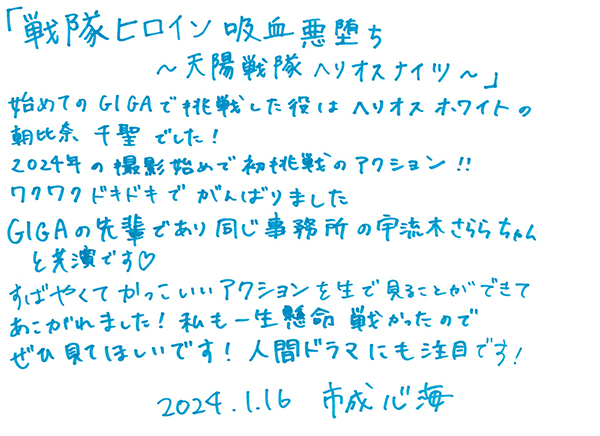 「戦隊ヒロイン吸血悪堕ち
～天陽戦隊ヘリオスナイツ～」
始めてのGIGAで挑戦した役はヘリオスホワイトの
朝比奈 千聖でした!
2024年の撮影始めで初挑戦のアクション!!
ワクワクドキドキでがんばりました
GIGAの先輩であり同じ事務所の宇流木さららちゃん
と共演です♡
すばやくてかっこいいアクションを生で見ることができて
あこがれました!私も一生懸命 戦かったので
ぜひ見てほしいです!人間ドラマにも注目です!
2024.1.16 市成心海